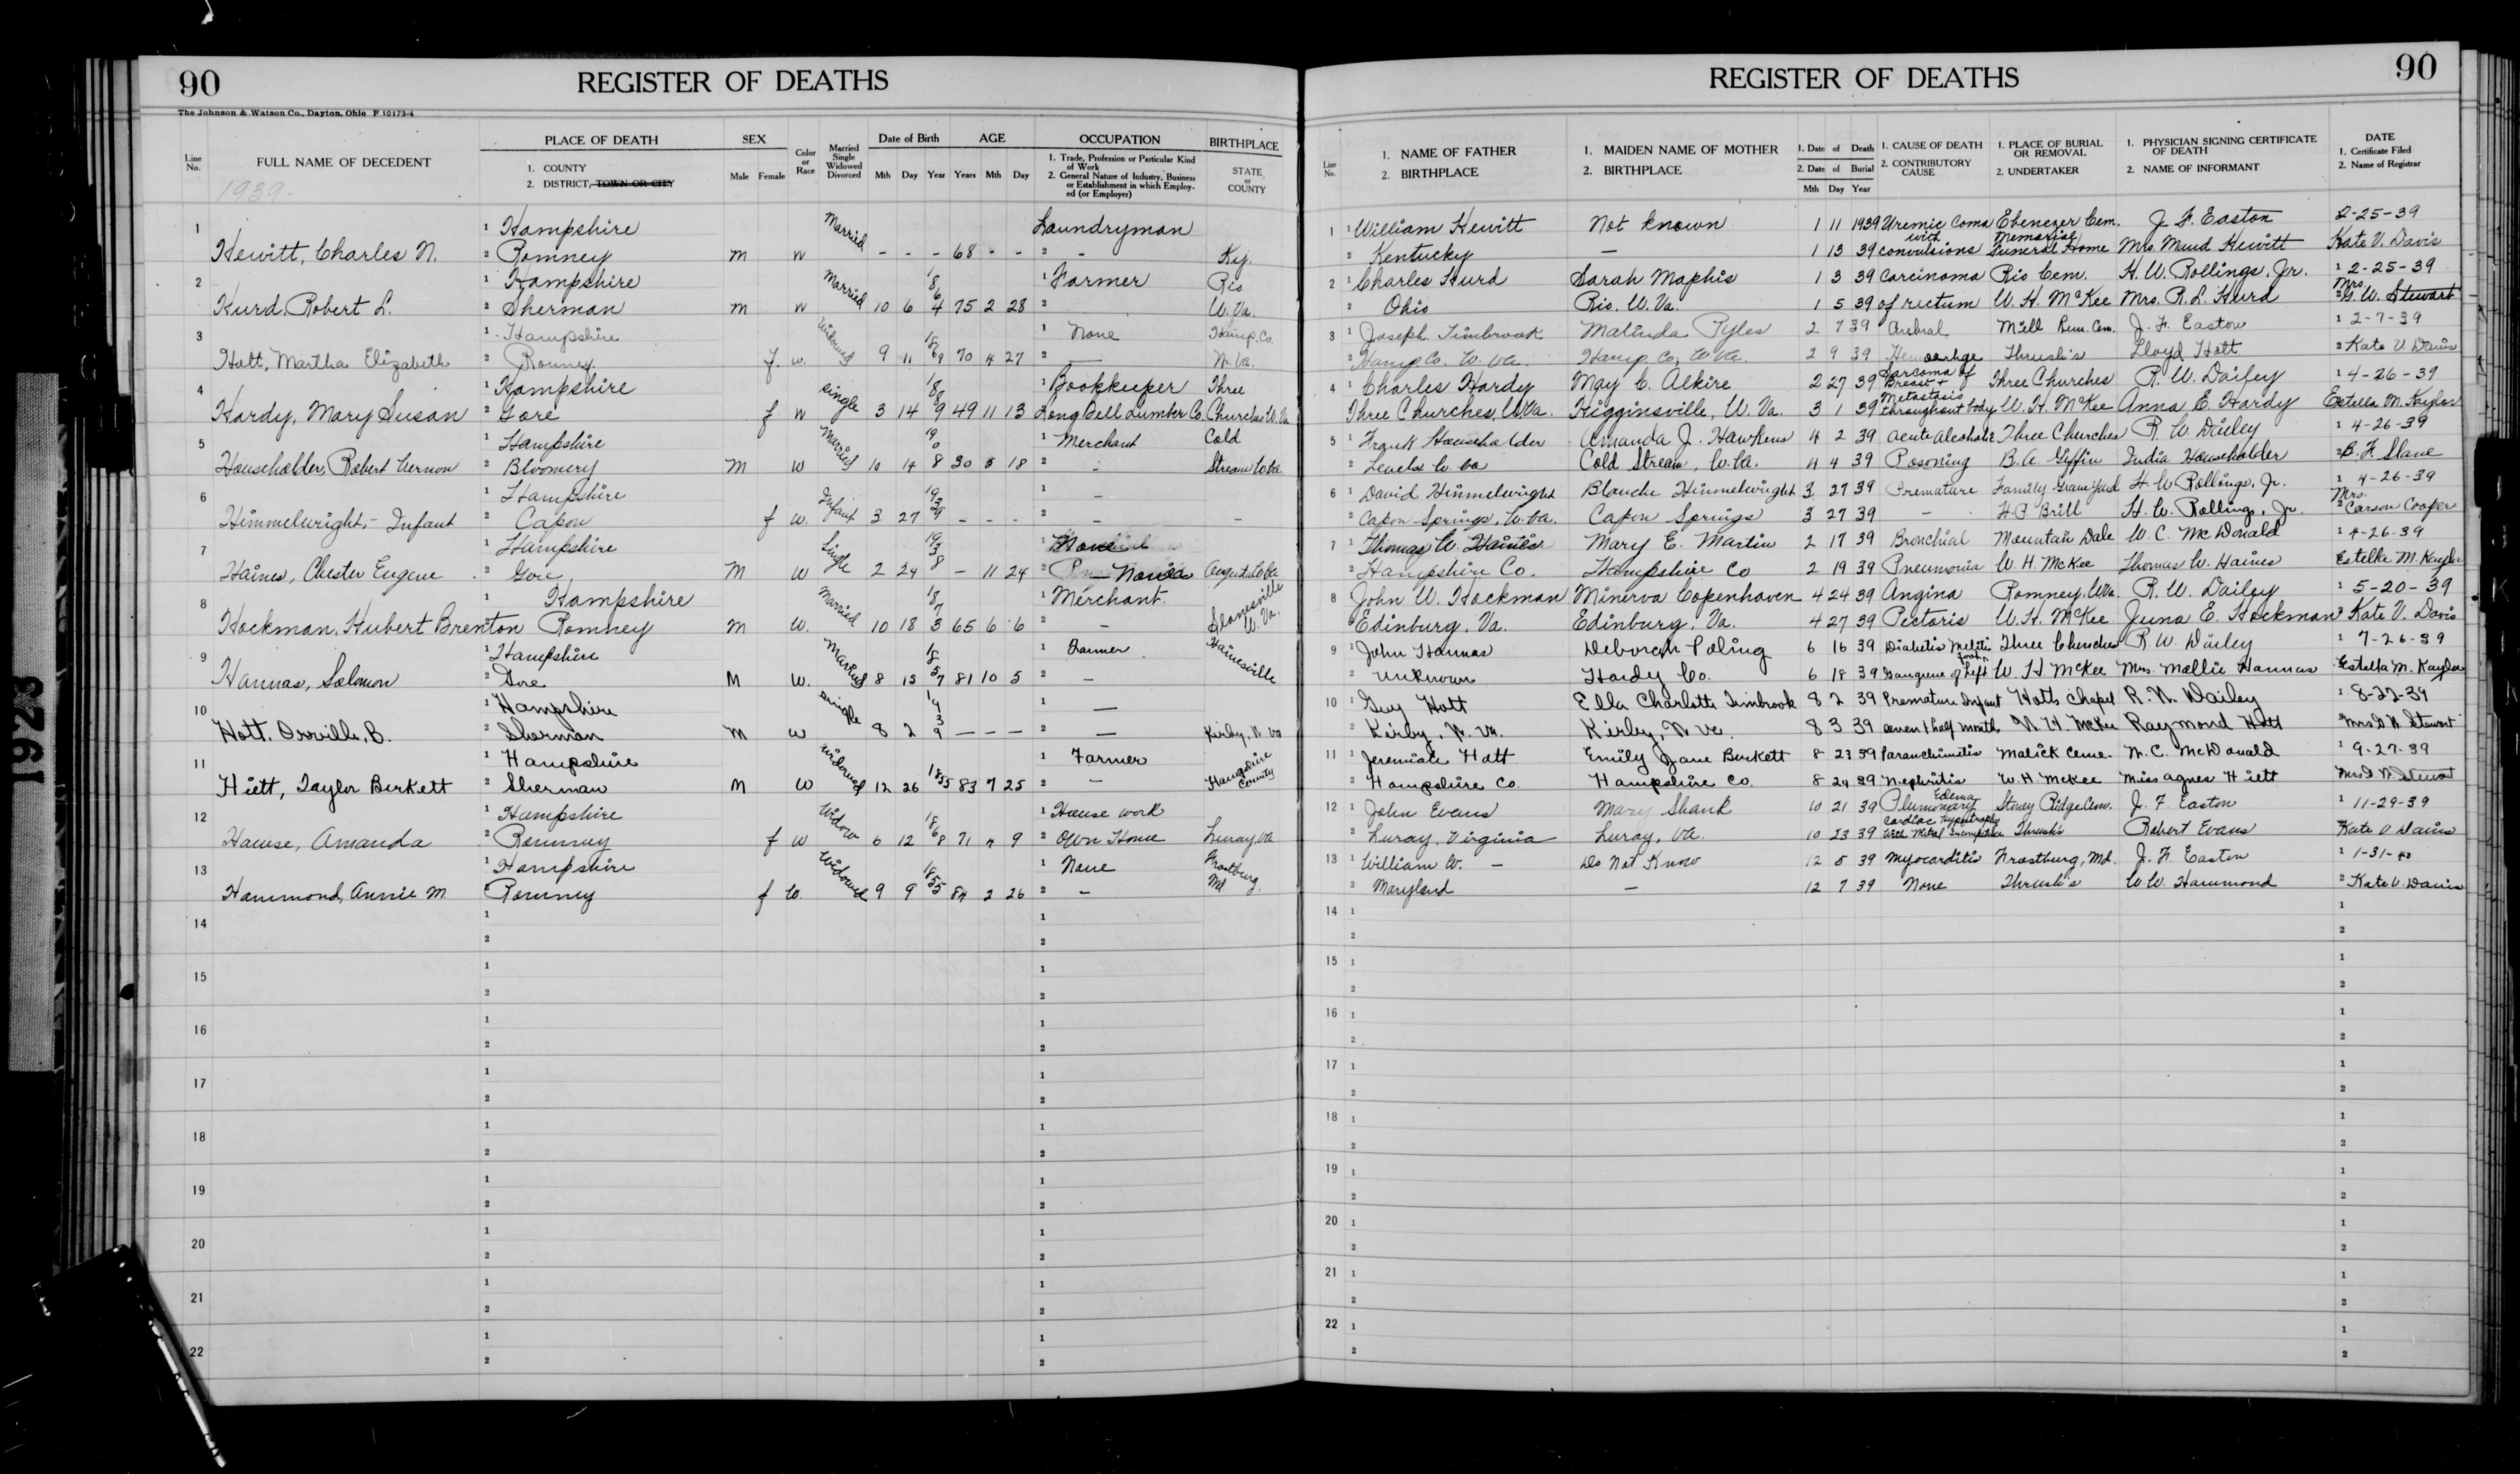 90 REGISTER OF DEATHS
The Johnson & Watson Co., Dayton, Ohio F 10173-4
Line No. FULL NAME OF DECEDENT PLACE OF DEATH 1. COUNTY 2. DISTRICT, TOWN OR CITY SEX Male Female Color or Race Married Single Widowed Divorced Date of Birth Mth Day Year AGE Years Mth Day OCCUPATION 1. Trade, Profession or Particular Kind of Work 2. General Nature of Industry, Business or Establishment in which Employed (or Employer) BIRTHPLACE STATE or COUNTY
1939-
1 1 Hampshire Married Laundryman
Hewitt, Charles N. 2 Romney M W - - - 68 - - 2 - Ky.
2 1 Hampshire Married 1 Farmer Rio
Hurd, Robert L. 2 Sherman M W 10 6 1864 75 2 28 2 W. Va.
3 1 Hampshire Widowed 1 None Hamp. Co.
Hott, Martha Elizabeth 2 Romney f. w. 9 11 1869 70 4 27 2 — W. Va.
4 1 Hampshire Single 1 Bookkeeper Three
Hardy, Mary Susan 2 Gore f W 3 14 1889 49 11 13 Long Bell Lumber Co. Churches W. Va.
5 1 Hampshire Married 1 Merchant Cold
Householder, Robert Vernon 2 Bloomery M W 10 14 1908 30 5 18 2 - Stream W Va
6 1 Hampshire Infant 1 -
Himmelwright - Infant 2 Capon f W. 3 27 1939 - - - 2 - -
7 1 Hampshire Single 1
Haines, Chester Eugene 2 Gore M W 2 24 1938 - 11 24 2 None Augusta W Va
8 1 Hampshire Married 1 Merchant. Slanesville
Hockman, Hubert Brenton Romney M W. 10 18 1873 65 6 6 2 - W. Va.
9 1 Hampshire Married 1 Farmer Hainesville
Hannas, Solomon 2 Gore M W. 8 13 1857 81 10 5 2 -
10 1 Hampshire Single 1 —
Hott, Orville, B. 2 Sherman M W 8 2 1939 — — — 2 — Kirby, W Va
11 1 Hampshire Widowed 1 Farmer Hampshire
Hiett, Taylor Berkett 2 Sherman M W 12 26 1855 83 7 25 2 - County
12 1 Hampshire Widow 1 House work
Hause, Amanda 2 Romney f W 6 12 1868 71 4 9 2 Own Home Luray Va
13 1 Hampshire Widowed 1 None Frostburg
Hammond, Annie M 2 Romney f W. 9 9 1855 84 2 26 2 - Md.
14 1 1
2 2
15 1 1
2 2
16 1 1
2 2
17 1 1
2 2
18 1 1
2 2
19 1 1
2 2
20 1 1
2 2
21 1 1
2 2
22 1 1
2 2
REGISTER OF DEATHS 90
Line No. 1. NAME OF FATHER 2. BIRTHPLACE 1. MAIDEN NAME OF MOTHER 2. BIRTHPLACE 1. Date of Death 2. Date of Burial Mth Day Year 1. CAUSE OF DEATH 2. CONTRIBUTORY CAUSE 1. PLACE OF BURIAL OR REMOVAL 2. UNDERTAKER 1. PHYSICIAN SIGNING CERTIFICATE OF DEATH 2. NAME OF INFORMANT DATE 1. Certificate Filed 2. Name of Registrar
1 1 William Hewitt Not known 1 11 1939 Uremic Coma Ebenezer Cem. J. F. Easton 2-25-39
2 Kentucky — 1 13 39 with convulsions Memorial Funeral Home Mrs. Maud Hewitt Kate V. Davis
2 1 Charles Hurd Sarah Maphis 1 3 39 Carcinoma Rio Cem. H. W. Rollings, Jr. 1 2-25-39
2 Ohio Rio. W. Va. 1 5 39 of rectum W. H. McKee Mrs. R. L. Hurd 2 Mrs. G. W. Stewart
3 1 Joseph Timbrook Malinda Pyles 2 7 39 Cerebral Mill Rem. Cem. J. F. Easton 1 2-7-39
2 Hamp. Co. W. Va. Hamp. Co. W. Va. 2 9 39 Hemorrhge Thrush's Lloyd Hott 2 Kate V Davis
4 1 Charles Hardy May C. Alkire 2 27 39 Sarcoma of Breast + Three Churches R. W. Dailey 1 4-26-39
Three Churches, W. Va. Higginsville, W. Va. 3 1 39 Metastasis throughout body W. H. McKee Anna E. Hardy Estella M. Kaylor
5 1 Frank Householder Amanda J. Hawkins 4 2 39 Acute Alcoholic Three Churches R. W Dailey 1 4-26-39
2 Levels W Va Cold Stream, W. Va. 4 4 39 Posoning B. A. Giffin India Householder 2 B. F. Slane
6 1 David Himmelwright Blanche Himmelwright 3 27 39 Premature Family Grave Yard H. W Rollings, Jr. 1 4-26-39
2 Capon Springs, W. Va. Capon Springs 3 27 39 - H. P. Brill H. W. Rollings, Jr. 2 Mrs. Carson Cooper
7 1 Thomas W. Haines Mary E. Martin 2 17 39 Bronchial Mountain Dale W. C. McDonald 1 4-26-39
2 Hampshire Co. Hampshire Co 2 19 39 Pneumonia W. H. McKee Thomas W. Haines Estella M. Kaylor
8 John W. Hockman Minerva Copenhaven 4 24 39 Angina Romney, W Va. R. W. Dailey 1 5-20-39
Edinburg, Va. Edinburg, Va. 4 27 39 Pectoris W. H. McKee Juna E. Hockman 2 Kate V. Davis
9 1 John Hannas Deborah Poling 6 16 39 Diabetis Meliti Three Churches R. W. Dailey 1 7-26-39
2 Unknown Hardy Co. 6 18 39 Gangrene of Left foot W. H McKee Mrs. Mollie Hannas Estella M. Kaylor
10 1 Guy Hott Ella Charlotte Timbrook 8 2 39 Premature Infant Hotts Chapel R. W. Dailey 1 8-22-39
2 Kirby, W. Va. Kirby, W Va. 8 3 39 seven & half month W. H. McKee Raymond Hott Mrs G W Stewart
11 1 Jeremiah Hott Emily Jane Berkett 8 23 39 Paranchimitis Malick Ceme. W. C. McDonald 1 9-27-39
2 Hampshire Co. Hampshire Co. 8 24 39 Nephritis W. H McKee Miss Agnes Hiett Mrs G W Stewart
12 1 John Evans Mary Shank 10 21 39 Plumonary Edema Stoney Ridge Cem. J. F Easton 1 11-29-39
2 Luray, Virginia Luray, Va. 10 23 39 Cardiac Hypertrophy with Mitral Thrush's Robert Evans Kate V Davis
13 1 William W. - Do Not Know 12 5 39 Myocarditis Frostburg, Md. J. F. Easton 1 1-31-40
2 Maryland — 12 7 39 None Thrush's W. W. Hammond 2 Kate V. Davis
14 1 1
2 2
15 1 1
2 2
16 1 1
2 2
17 1 1
2 2
18 1 1
2 2
19 1 1
2 2
20 1 1
2 2
21 1 1
2 2
22 1 1
2 2
1923